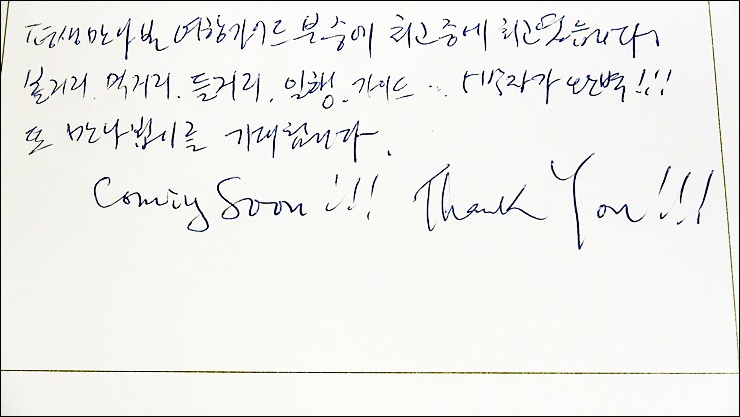 평생 만나 뵌 여행가이드 분 중에 최고 중에 최고였습니다.
볼거리. 먹거리. 들거리. 일행. 가이드 ... 박자가 완벽!!!
또 만나뵙시를 기대합니다.
Coming Soon!!! Thank You!!!